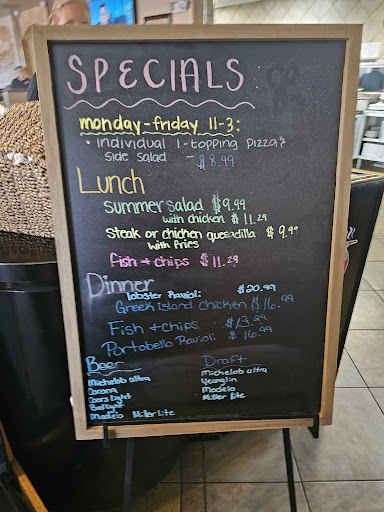 SPECIALS
monday-friday 11-3:
• individual 1-topping pizza &
side salad - $8.99
Lunch
summer salad $9.99
with chicken $11.29
steak or chicken quesadilla $9.99
with fries
fish + chips $11.29
Dinner
lobster Ravioli $20.99
Greek island chicken $16.99
Fish + chips $13.29
Portobello Ravioli $16.99
Beer
Michelob ultra
Corona
Coors light
Bud light
Modelo Miller Lite
Draft
Michelob ultra
Yeunglin
Modelo
Miller lite